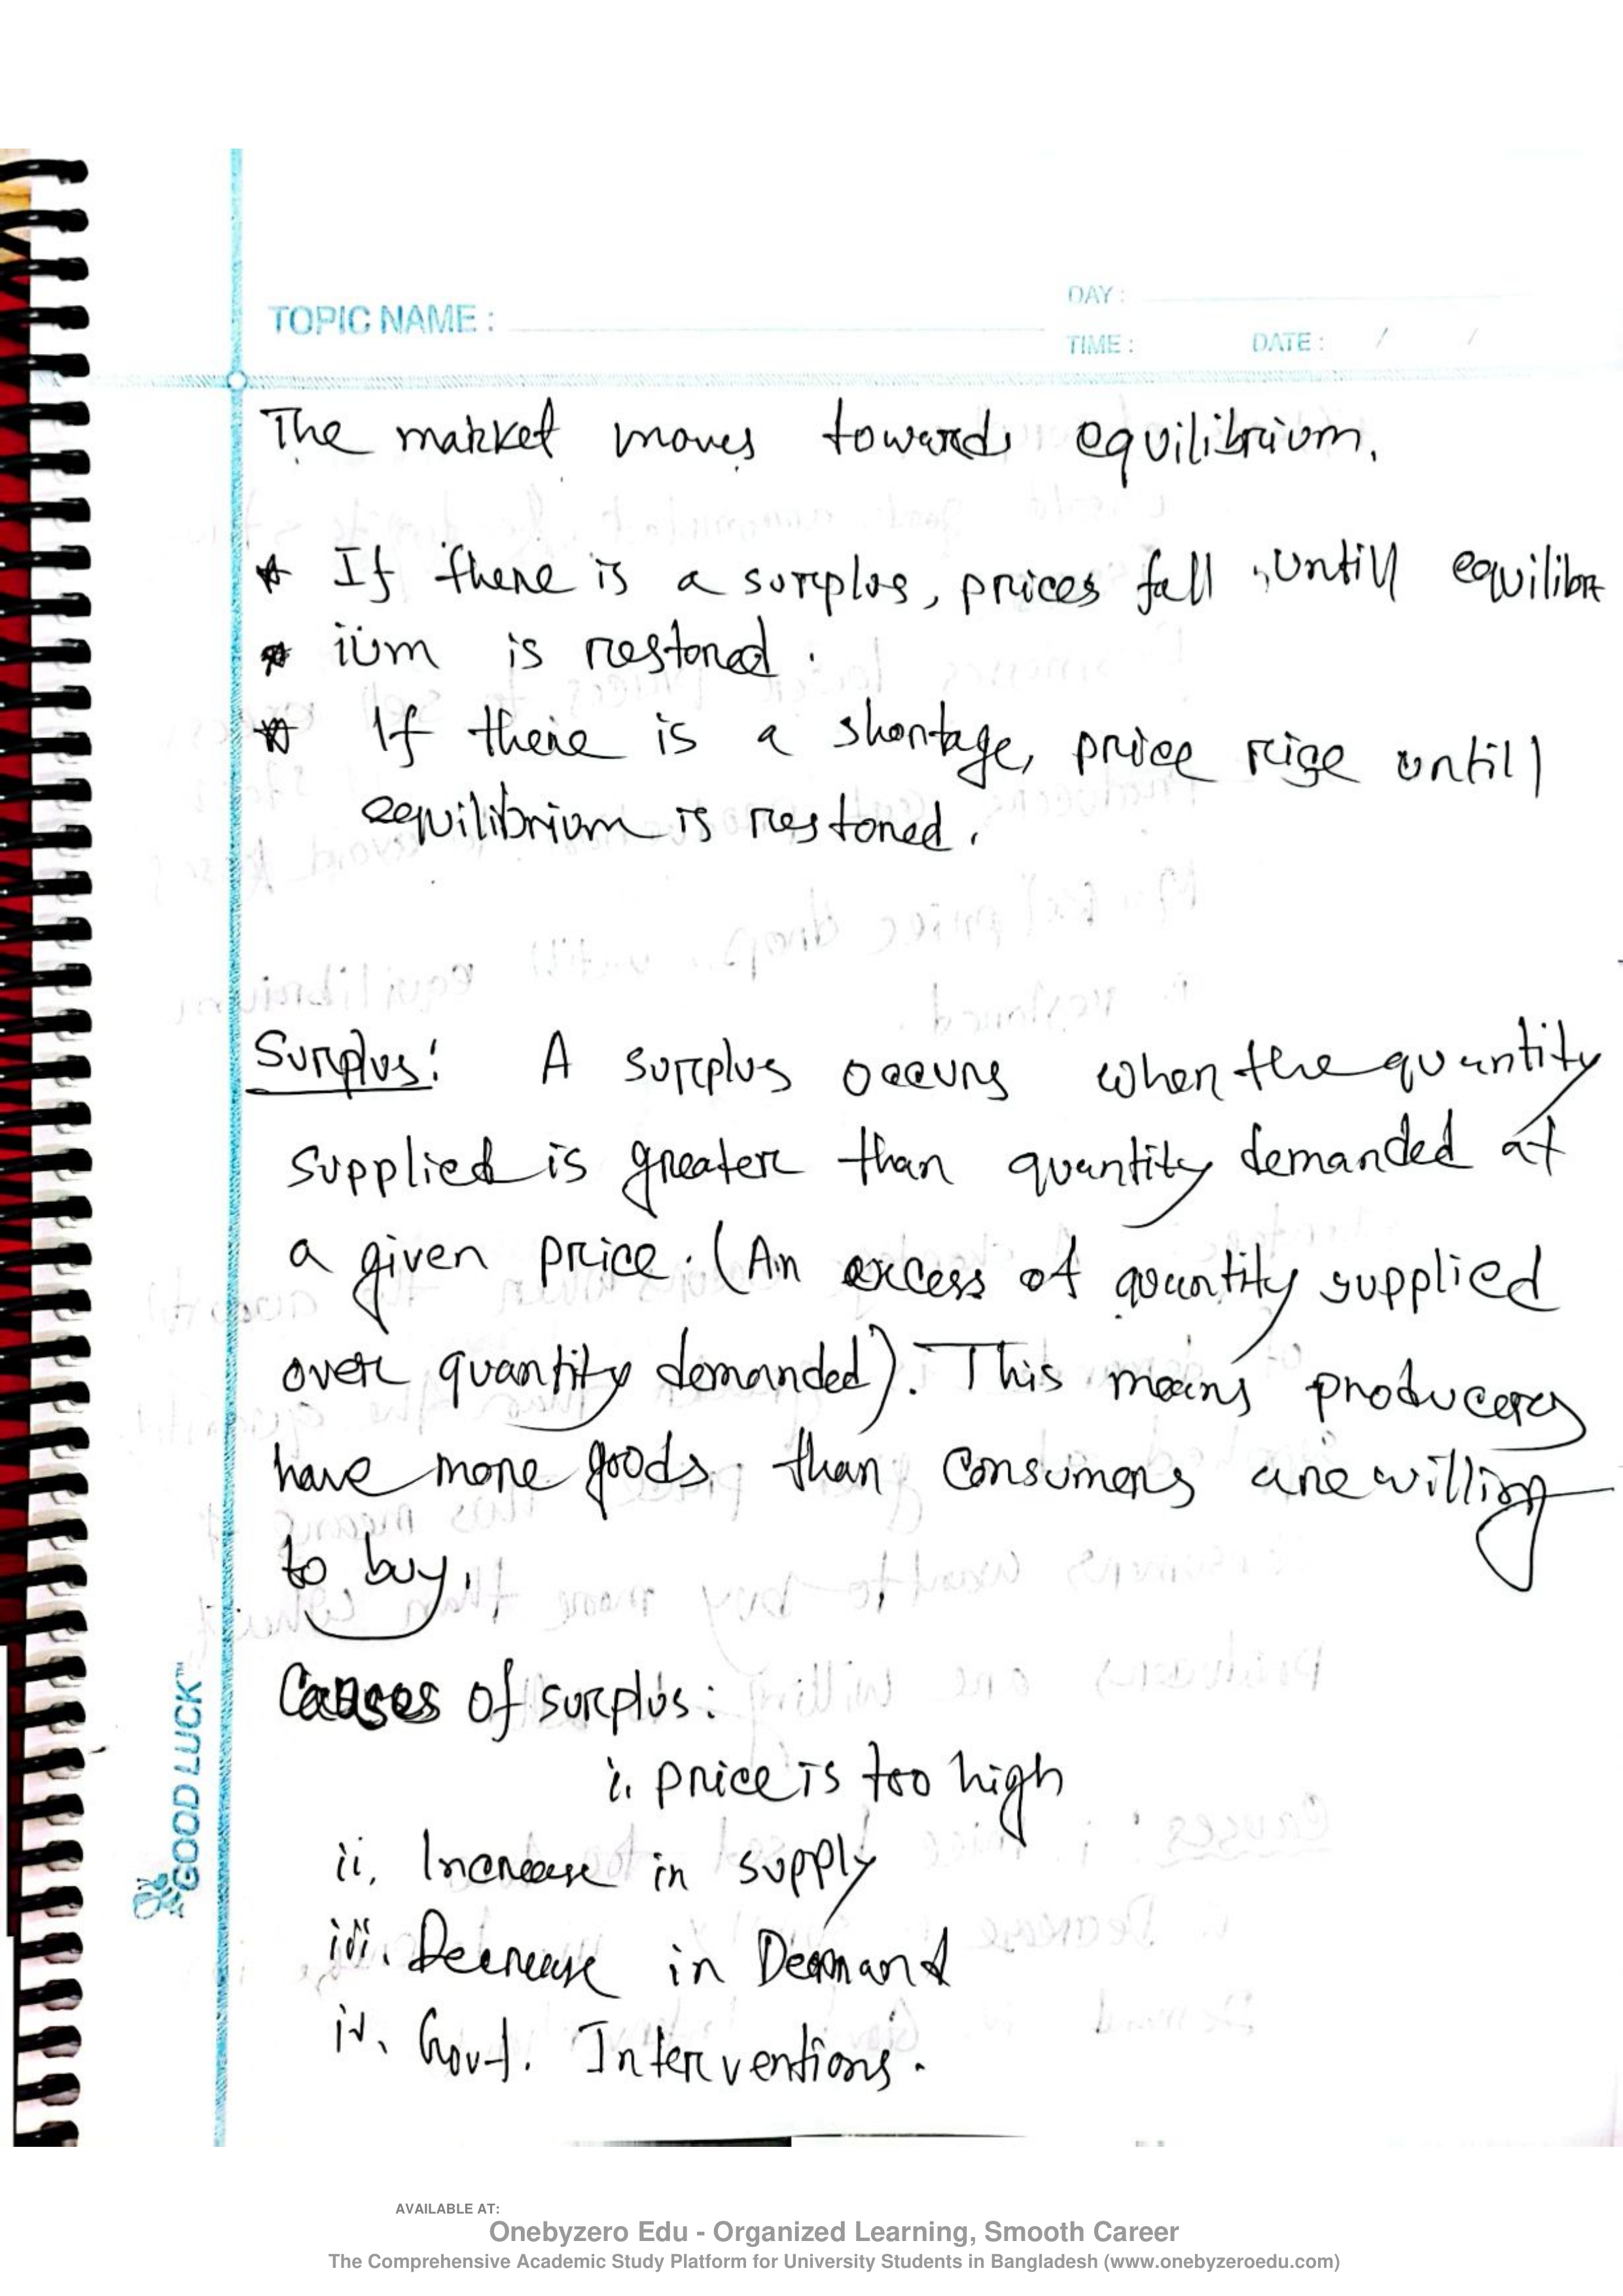 TOPIC NAME :
DAY :
TIME : DATE : / /
The market moves towards equilibrium.
* If there is a surplus, prices fall, untill equilibr
* ium is restored.
* If there is a shortage, price rise untill
equilibrium is restored.
Surplus: A surplus occurs when the quantity
supplied is greater than quantity demanded at
a given price. (An excess of quantity supplied
over quantity demanded). This means producers
have more goods, than consumers are willing
to buy.
Causes of surplus:
i. price is too high
ii. Increase in supply
iii. Decrease in Demand
iv. Govt. Interventions.
GOOD LUCK™
AVAILABLE AT:
Onebyzero Edu - Organized Learning, Smooth Career
The Comprehensive Academic Study Platform for University Students in Bangladesh (www.onebyzeroedu.com)